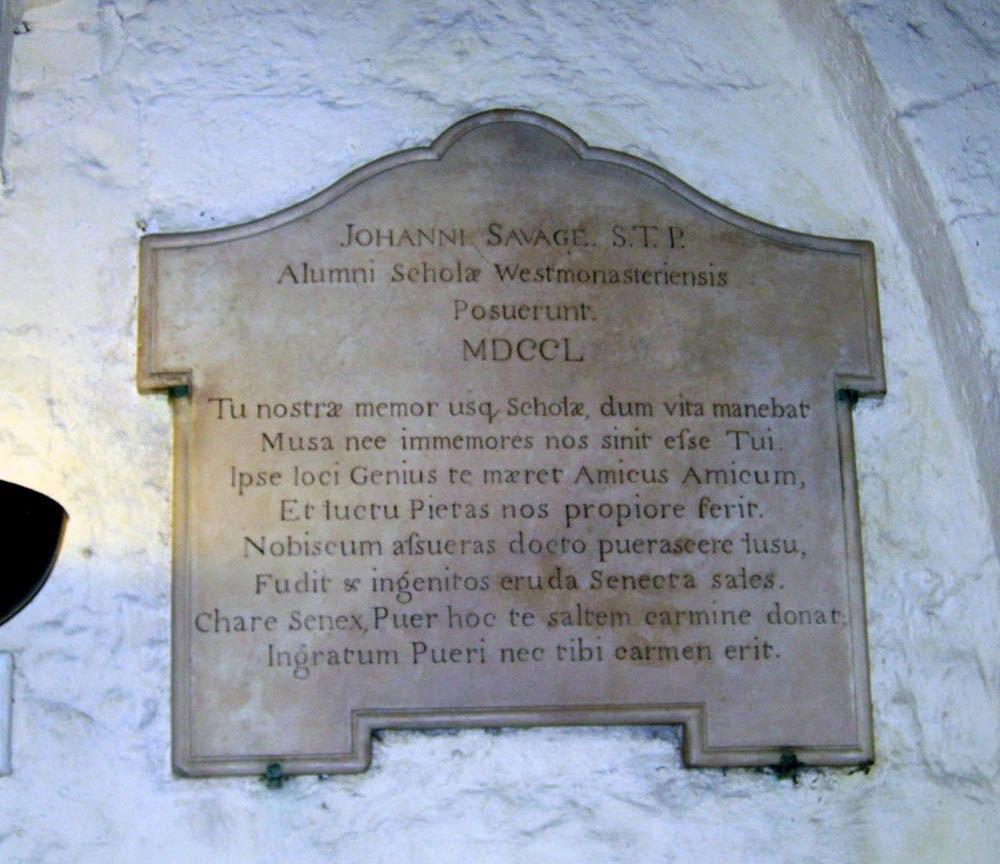 JOHANNI SAVAGE. S.T.P.
ALUMNI SCHOLÆ WESTMONASTERIENSIS
POSUERUNT.
MDCCL
Tu nostræ memor usq. Scholæ, dum vita manebat
Musa nec immemores nos sinit eſse Tui.
Ipse loci Genius te mæret Amicus Amicum,
Et luctu Pietas nos propiore ferit.
Nobiscum aſsueras docto puerascere lusu,
Fudit & ingenitos cruda Senecta sales.
Chare Senex, Puer hoc te saltem carmine donat;
Ingratum Pueri nec tibi carmen erit.